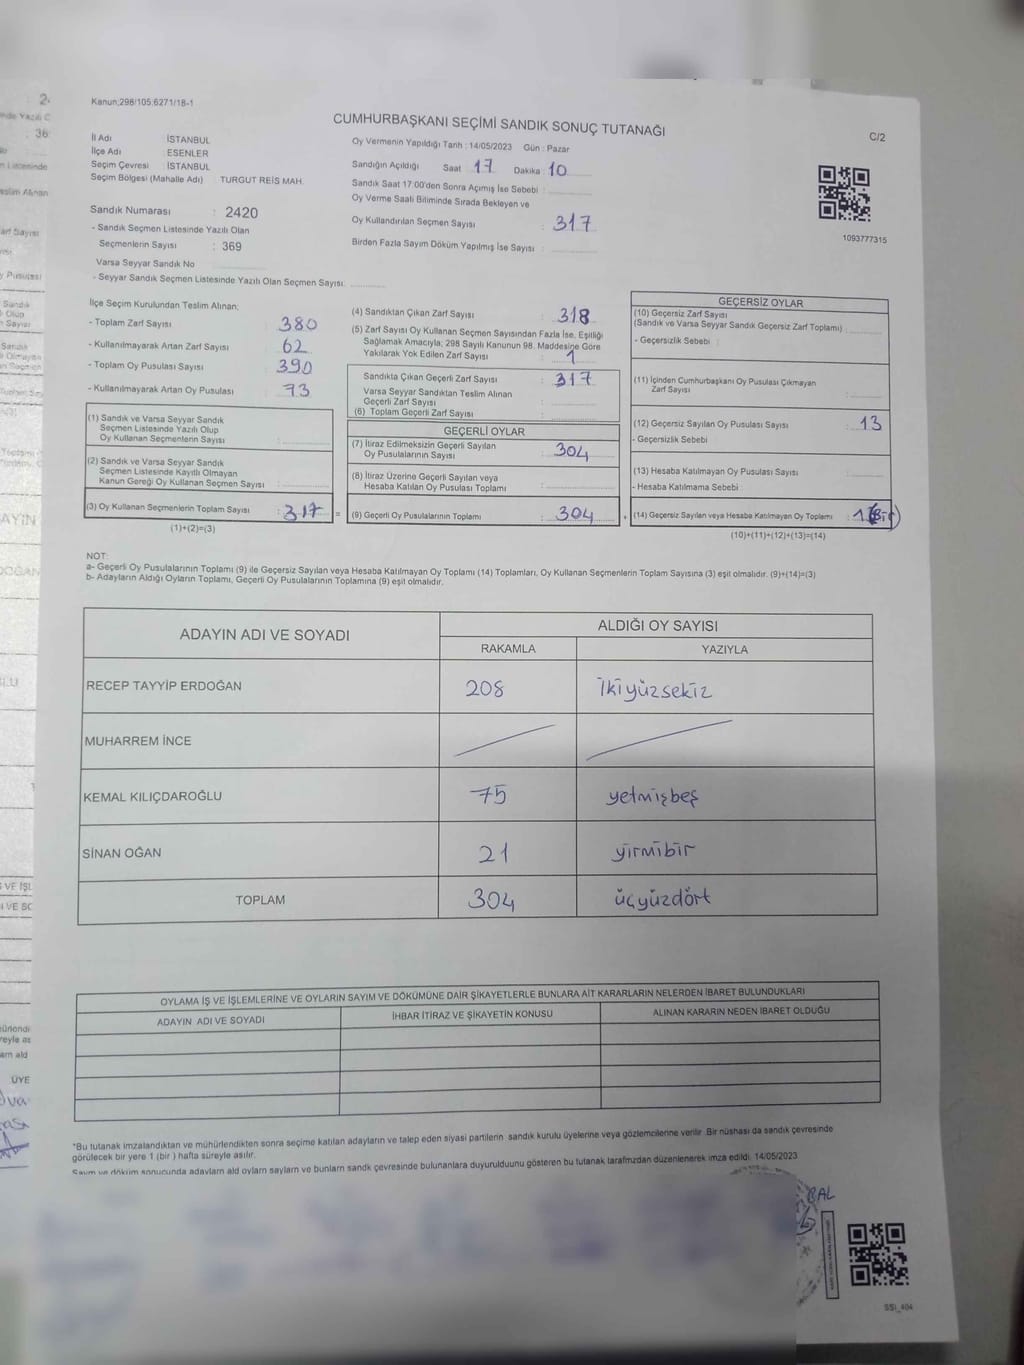 Kanun;298/105;6271/18-1
CUMHURBAŞKANI SEÇİMİ SANDIK SONUÇ TUTANAĞI
C/2
İl Adı İSTANBUL
İlçe Adı : ESENLER
Seçim Çevresi : İSTANBUL
Seçim Bölgesi (Mahalle Adı) TURGUT REİS MAH.
Sandık Numarası : 2420
- Sandık Seçmen Listesinde Yazılı Olan
Seçmenlerin Sayısı : 369
Varsa Seyyar Sandık No
- Seyyar Sandık Seçmen Listesinde Yazılı Olan Seçmen Sayısı:
Oy Vermenin Yapıldığı Tarih : 14/05/2023 Gün : Pazar
Sandığın Açıldığı Saat 17 Dakika 10
Sandık Saat 17:00'den Sonra Açımış İse Sebebi :
Oy Verme Saati Bitiminde Sırada Bekleyen ve
Oy Kullandırılan Seçmen Sayısı : 317
Birden Fazla Sayım Döküm Yapılmış İse Sayısı :
1093777315
İlçe Seçim Kurulundan Teslim Alınan;
- Toplam Zarf Sayısı : 380
- Kullanılmayarak Artan Zarf Sayısı : 62
- Toplam Oy Pusulası Sayısı : 390
- Kullanılmayarak Artan Oy Pusulası : 73
(1) Sandık ve Varsa Seyyar Sandık
Seçmen Listesinde Yazılı Olup
Oy Kullanan Seçmenlerin Sayısı :
(2) Sandık ve Varsa Seyyar Sandık
Seçmen Listesinde Kayıtlı Olmayan
Kanun Gereği Oy Kullanan Seçmen Sayısı :
(3) Oy Kullanan Seçmenlerin Toplam Sayısı : 317
(1)+(2)=(3)
(4) Sandıktan Çıkan Zarf Sayısı : 318
(5) Zarf Sayısı Oy Kullanan Seçmen Sayısından Fazla İse, Eşitliği
Sağlamak Amacıyla; 298 Sayılı Kanunun 98. Maddesine Göre
Yakılarak Yok Edilen Zarf Sayısı : 1
Sandıkta Çıkan Geçerli Zarf Sayısı : 317
Varsa Seyyar Sandıktan Teslim Alınan
Geçerli Zarf Sayısı :
(6) Toplam Geçerli Zarf Sayısı :
GEÇERLİ OYLAR
(7) İtiraz Edilmeksizin Geçerli Sayılan
Oy Pusulalarının Sayısı : 304
(8) İtiraz Üzerine Geçerli Sayılan veya
Hesaba Katılan Oy Pusulası Toplamı :
= (9) Geçerli Oy Pusulalarının Toplamı : 304 +
GEÇERSİZ OYLAR
(10) Geçersiz Zarf Sayısı
(Sandık ve Varsa Seyyar Sandık Geçersiz Zarf Toplamı) :
- Geçersizlik Sebebi :
(11) İçinden Cumhurbaşkanı Oy Pusulası Çıkmayan
Zarf Sayısı :
(12) Geçersiz Sayılan Oy Pusulası Sayısı : 13
- Geçersizlik Sebebi
(13) Hesaba Katılmayan Oy Pusulası Sayısı :
- Hesaba Katılmama Sebebi :
(14) Geçersiz Sayılan veya Hesaba Katılmayan Oy Toplamı :
(10)+(11)+(12)+(13)=(14)
NOT:
a- Geçerli Oy Pusulalarının Toplamı (9) ile Geçersiz Sayılan veya Hesaba Katılmayan Oy Toplamı (14) Toplamları, Oy Kullanan Seçmenlerin Toplam Sayısına (3) eşit olmalıdır. (9)+(14)=(3)
b- Adayların Aldığı Oyların Toplamı, Geçerli Oy Pusulalarının Toplamına (9) eşit olmalıdır.
ADAYIN ADI VE SOYADI
ALDIĞI OY SAYISI
RAKAMLA YAZIYLA
RECEP TAYYİP ERDOĞAN 208 ikiyüzsekiz
MUHARREM İNCE
KEMAL KILIÇDAROĞLU 75 yetmişbeş
SİNAN OĞAN 21 yirmibir
TOPLAM 304 üçyüzdört
OYLAMA İŞ VE İŞLEMLERİNE VE OYLARIN SAYIM VE DÖKÜMÜNE DAİR ŞİKAYETLERLE BUNLARA AİT KARARLARIN NELERDEN İBARET BULUNDUKLARI
ADAYIN ADI VE SOYADI İHBAR İTİRAZ VE ŞİKAYETİN KONUSU ALINAN KARARIN NEDEN İBARET OLDUĞU
*Bu tutanak imzalandıktan ve mühürlendikten sonra seçime katılan adayların ve talep eden siyasi partilerin sandık kurulu üyelerine veya gözlemcilerine verilir. Bir nüshası da sandık çevresinde
görülecek bir yere 1 (bir ) hafta süreyle asılır.
Sayım ve döküm sonucunda adayların ald oyların sayların ve bunların sandk çevresinde bulunanlara duyurulduunu gösteren bu tutanak tarafmzdan düzenlenerek imza edildi. 14/05/2023
SSI_404